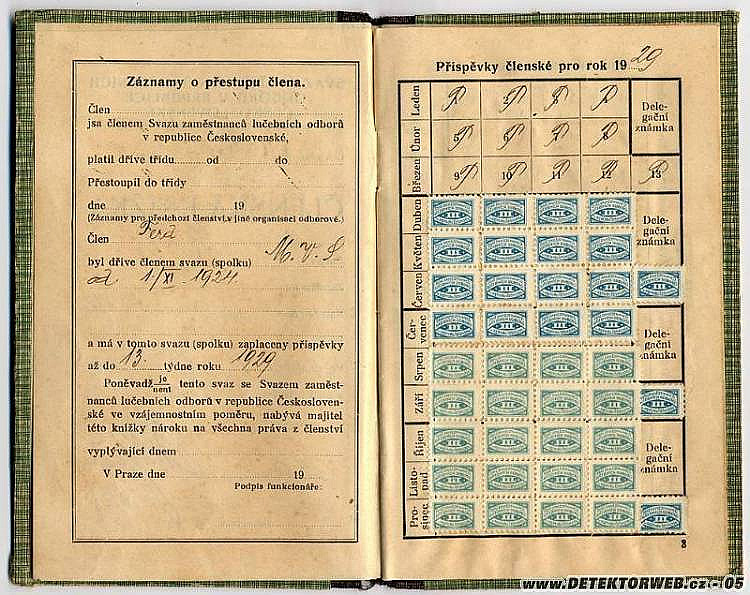 Záznamy o přestupu člena.
Člen
jsa členem Svazu zaměstnanců lučebních odborů
v republice Československé,
platil dříve třídu od do
Přestoupil do třídy
dne 19
(Záznamy pro předchozí členství v jiné organisaci odborové.)
Člen Ferd
byl dříve členem svazu (spolku) M. V. S
od 1/XI 1924
a má v tomto svazu (spolku) zaplaceny příspěvky
až do 13. týdne roku 1929
Poněvadž je/není tento svaz se Svazem zaměst-
nanců lučebních odborů v republice Českosloven-
ské ve vzájemnostním poměru, nabývá majitel
této knížky nároku na všechna práva z členství
vyplývající dnem
V Praze dne 19
Podpis funkcionáře:
Příspěvky členské pro rok 1929
Leden 1 2 3 4 Dele-
gační
známka
Únor 5 6 7 8
Březen 9 10 11 12 13
Duben
Květen
Červen
Dele-
gační
známka
Čer-
venec
Srpen
Září
Dele-
gační
známka
Říjen
Listo-
pad
Pro-
sinec
Dele-
gační
známka
3
www.DETEKTORWEB.cz - 05